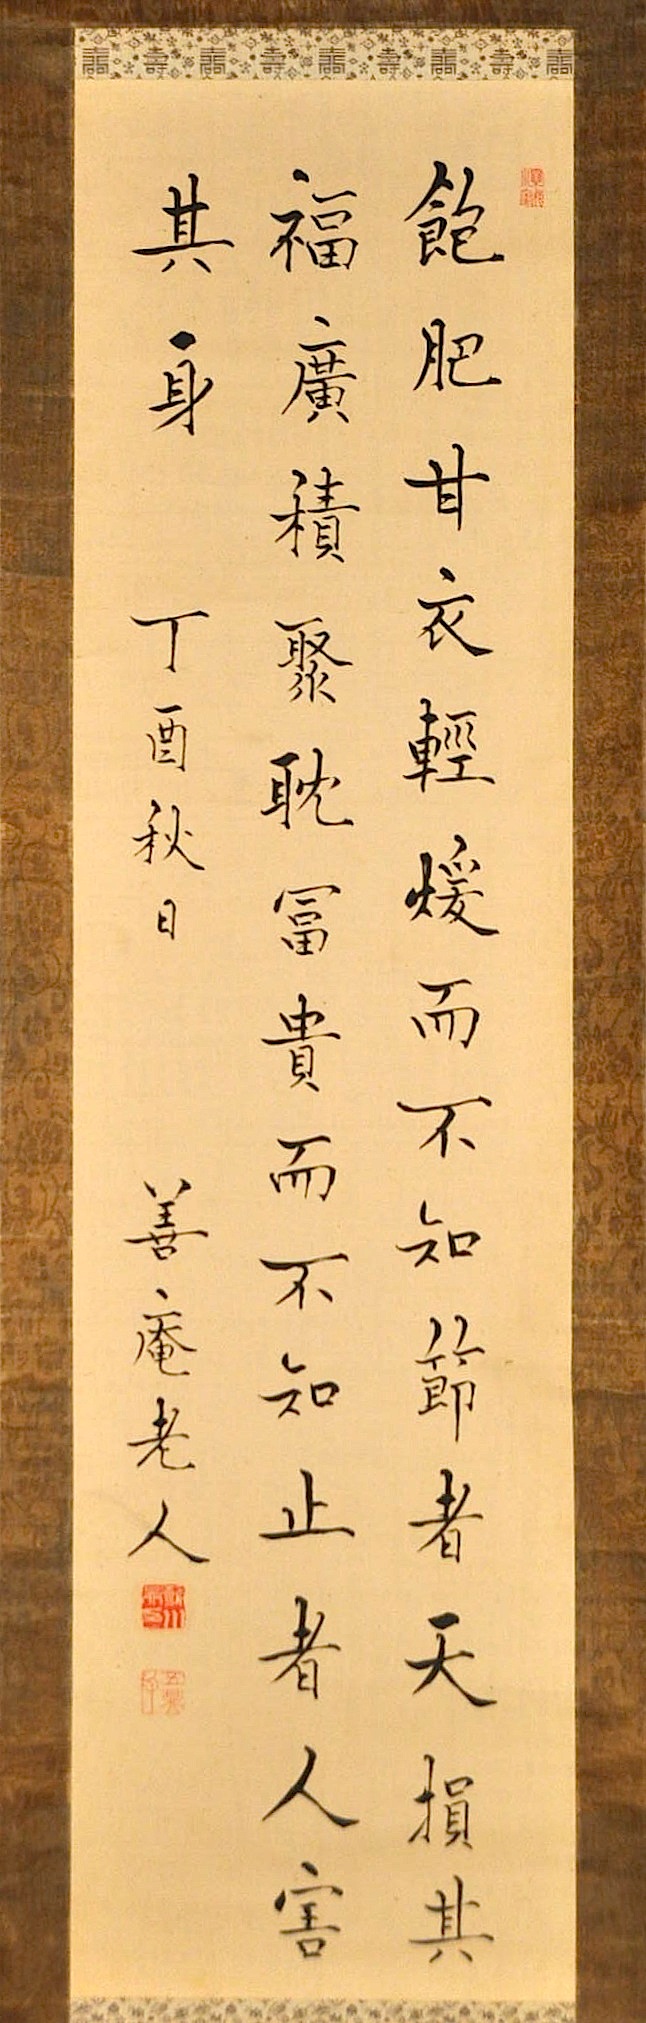 飽肥甘衣輕煖而不知節者天損其
福廣積聚耽冨貴而不知止者人害
其身 丁酉秋日 善庵老人